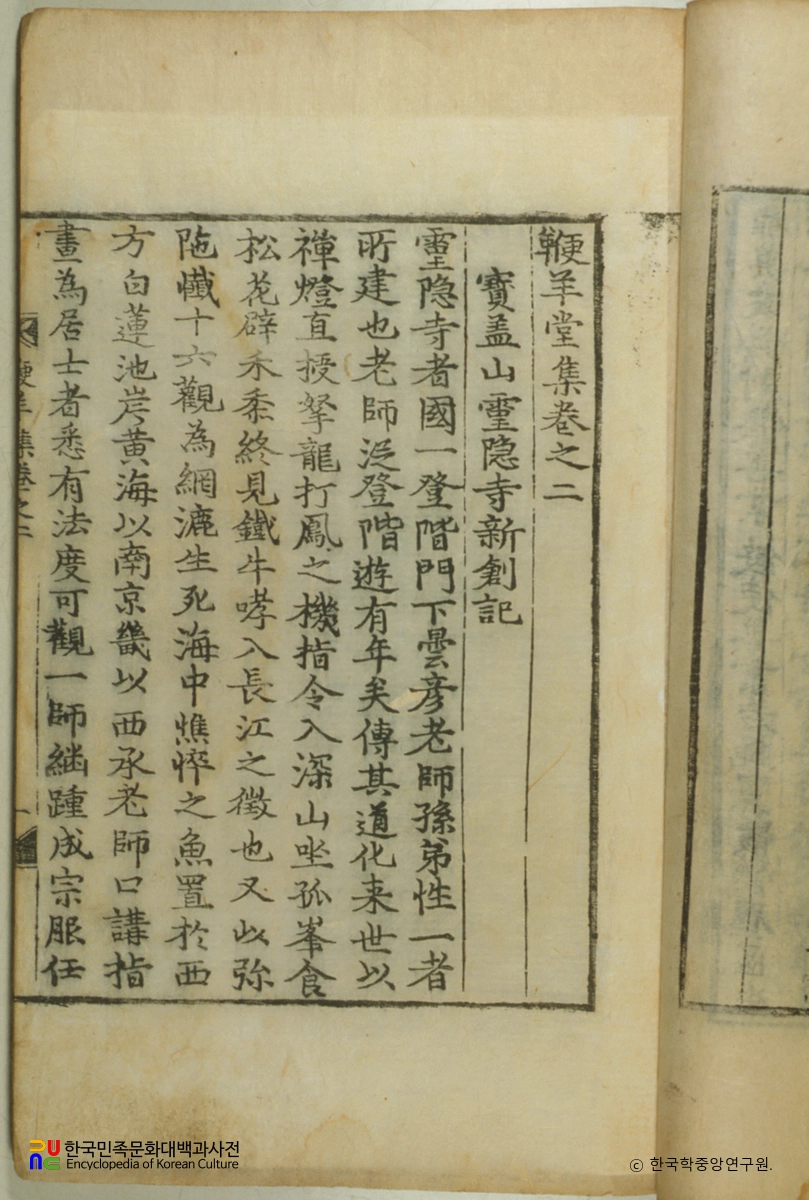 鞭羊堂集卷之二
寳盖山霊隐寺新創記
霊隐寺者國一登階門下曇彦老師孫弟性一者
所建也老師泛登階遊有年矣傳其道化来世以
禅燈直授拏龍打鳳之機指令入深山坐孤峯食
松花辟禾黍終見鐵牛哮入長江之徴也又以弥
陁懺十六觀為網漉生死海中憔悴之魚置扵西
方白蓮池岸黄海以南京畿以西承老師口講指
畫為居士者悉有法度可觀一師継踵成宗服任
鞭羊集卷之二
한국민족문화대백과사전
Encyclopedia of Korean Culture
© 한국학중앙연구원.